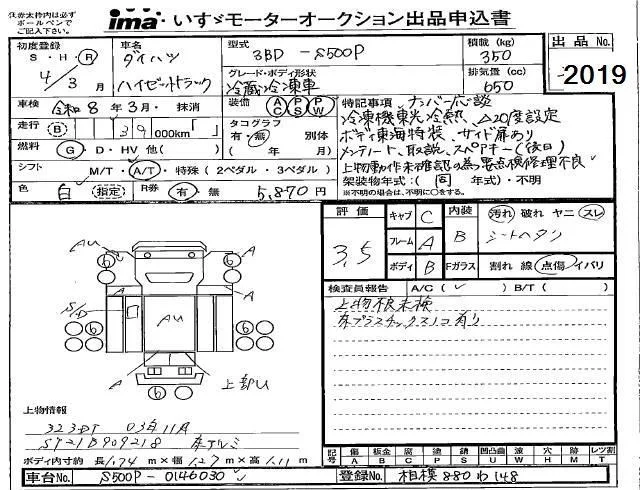 (注)赤太枠内は必ず
ボールペンで
ご記入下さい。
ima いすゞモーターオークション出品申込書
初度登録
S・H・R
4/3月
車名
ダイハツ
ハイゼットトラック
型式
3BD - S500P
積載 (kg)
350
出品 No.
2019
グレード・ボディ形状
冷蔵冷凍車
排気量 (cc)
650
車検 令和8年3月・抹消
装備 AC PS PW
特記事項、ナンバー応談
冷凍機東光冷熱、△20度設定
走行 B 39 000km「 」
タコグラフ
有・無 別体
( 年 月)
ボディ東海特装、サイド扉あり
メンテノート、取説、スペアキー(後日)
燃料 G・D・HV 他( )
上物動作未確認の為要点検修理不良
シフト M/T・A/T・特殊(2ペダル・3ペダル)
架装物年式:(同 年式)・不明
※不明の場合は、不明に○をする。
色 白 (指定) R券 有・無 5,870円
評価
3.5
キャブ C
フレーム A
ボディ B
内装 B
Fガラス
汚れ 破れ ヤニ スレ
シートヘタリ
割れ 線 点傷 イバリ
検査員報告 A/C( ✓ ) B/T( )
上物根未検
床プラスチックスノコ有り
AU A
A A
S/D
AU
A A
上部U
上物情報
323DT 03年11月
ST21B909218 床アルミ
ボディ内寸約 長1.74 m×幅1.27 m×高1.11 m
記号 A傷 B板金 C腐 P塗 S錆 U凹凸曲 W波 H穴 M欠 T レッ割
車台No. S500P-0146030
登録No. 相模 880 わ 148